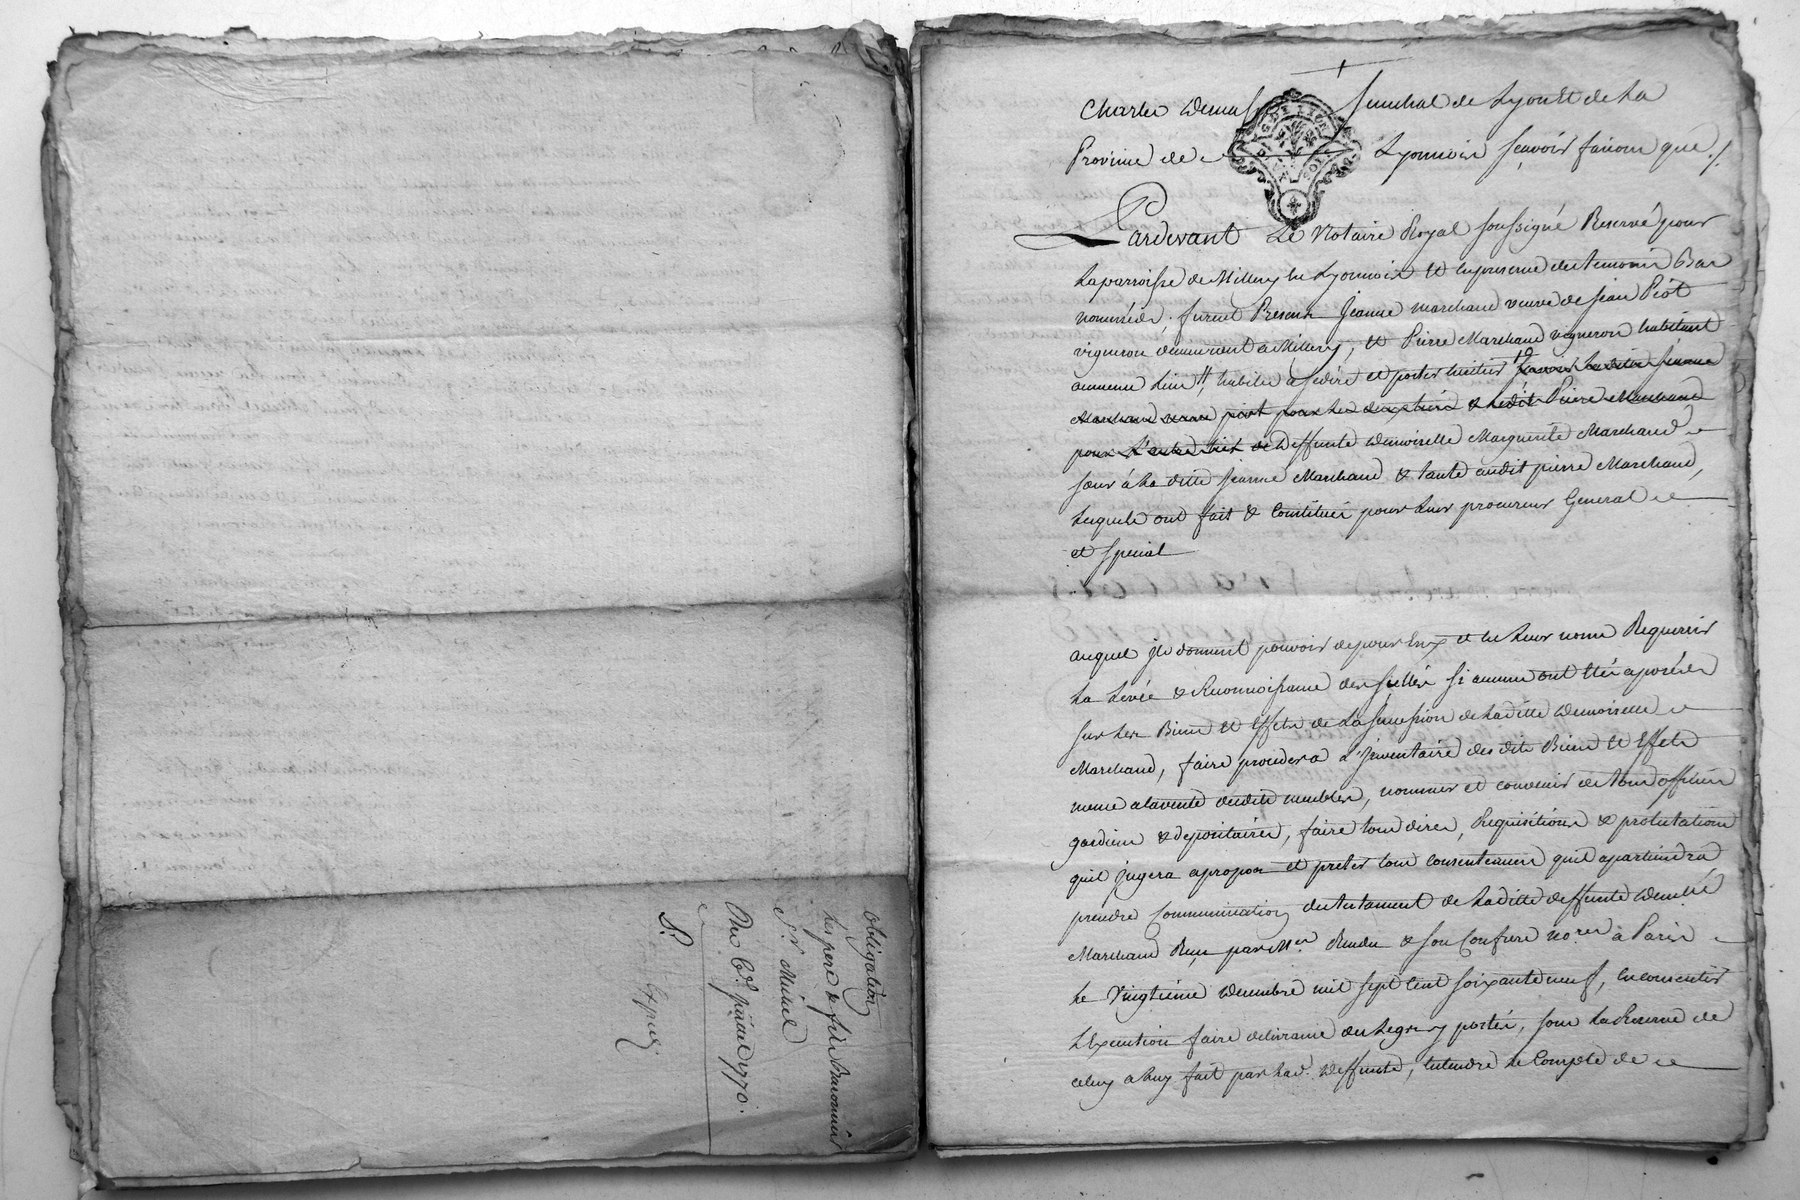 obligation
les pere & fils
Sr Michel
Du 6e janv. 1770.
Expiée
Charles Demas Senechal de Lyon Et de La
Province de Lyonnois sçavoir faisons que /
GEN DE LYON
DEUX SOLS
Pardevant Le Notaire Royal soussigné Reservé pour
La parroisse de Millery en Lyonnois Et en presence des temoins Bas
nommées, furent Presens Jeanne Marchand veuve de Jean Piot
vigneron demeurant a Millery, et Pierre Marchand vigneron habitant
au meme Lieu habiles a sedire et porter heritiers sçavoir La ditte Jeanne
Marchand veuve piot pour les & Ledit Pierre Marchand
pour L'autre de Deffunte Demoiselle Marguerite Marchand
sœur à La ditte Jeanne Marchand & tante audit pierre Marchand,
Lesquels ont fait & Constitués pour Leur procureur General
et special
auquel ils donnent pouvoir de pour Eux et en Leur nom Requerir
La Levée & Reconnoissance des scellés si aucuns ont étés aposées
sur Les Biens et Effets de La succession de Laditte Demoiselle
Marchand, faire proceder a L'jnventaire des dits Biens et Effets
meme a la vente desdits meubles, nommer et convenir de tous officiers
gardiens & depositaires, faire tous dires, Requisitions & protestations
quil jugera apropos et preter tous consentemens quil apartiendra
prendre Communication du testament de Laditte deffunte Demlle
Marchand Reçu par Mer Rendu & son Confrere nores à Paris
Le Vingtieme Decembre mil sept Cent soixante neuf, en consentir
L'Execution faire delivrance des Legs y portés, sous La Reserve de
celuy a Luy fait par Lad. Deffunte, Entendre Le Compte de